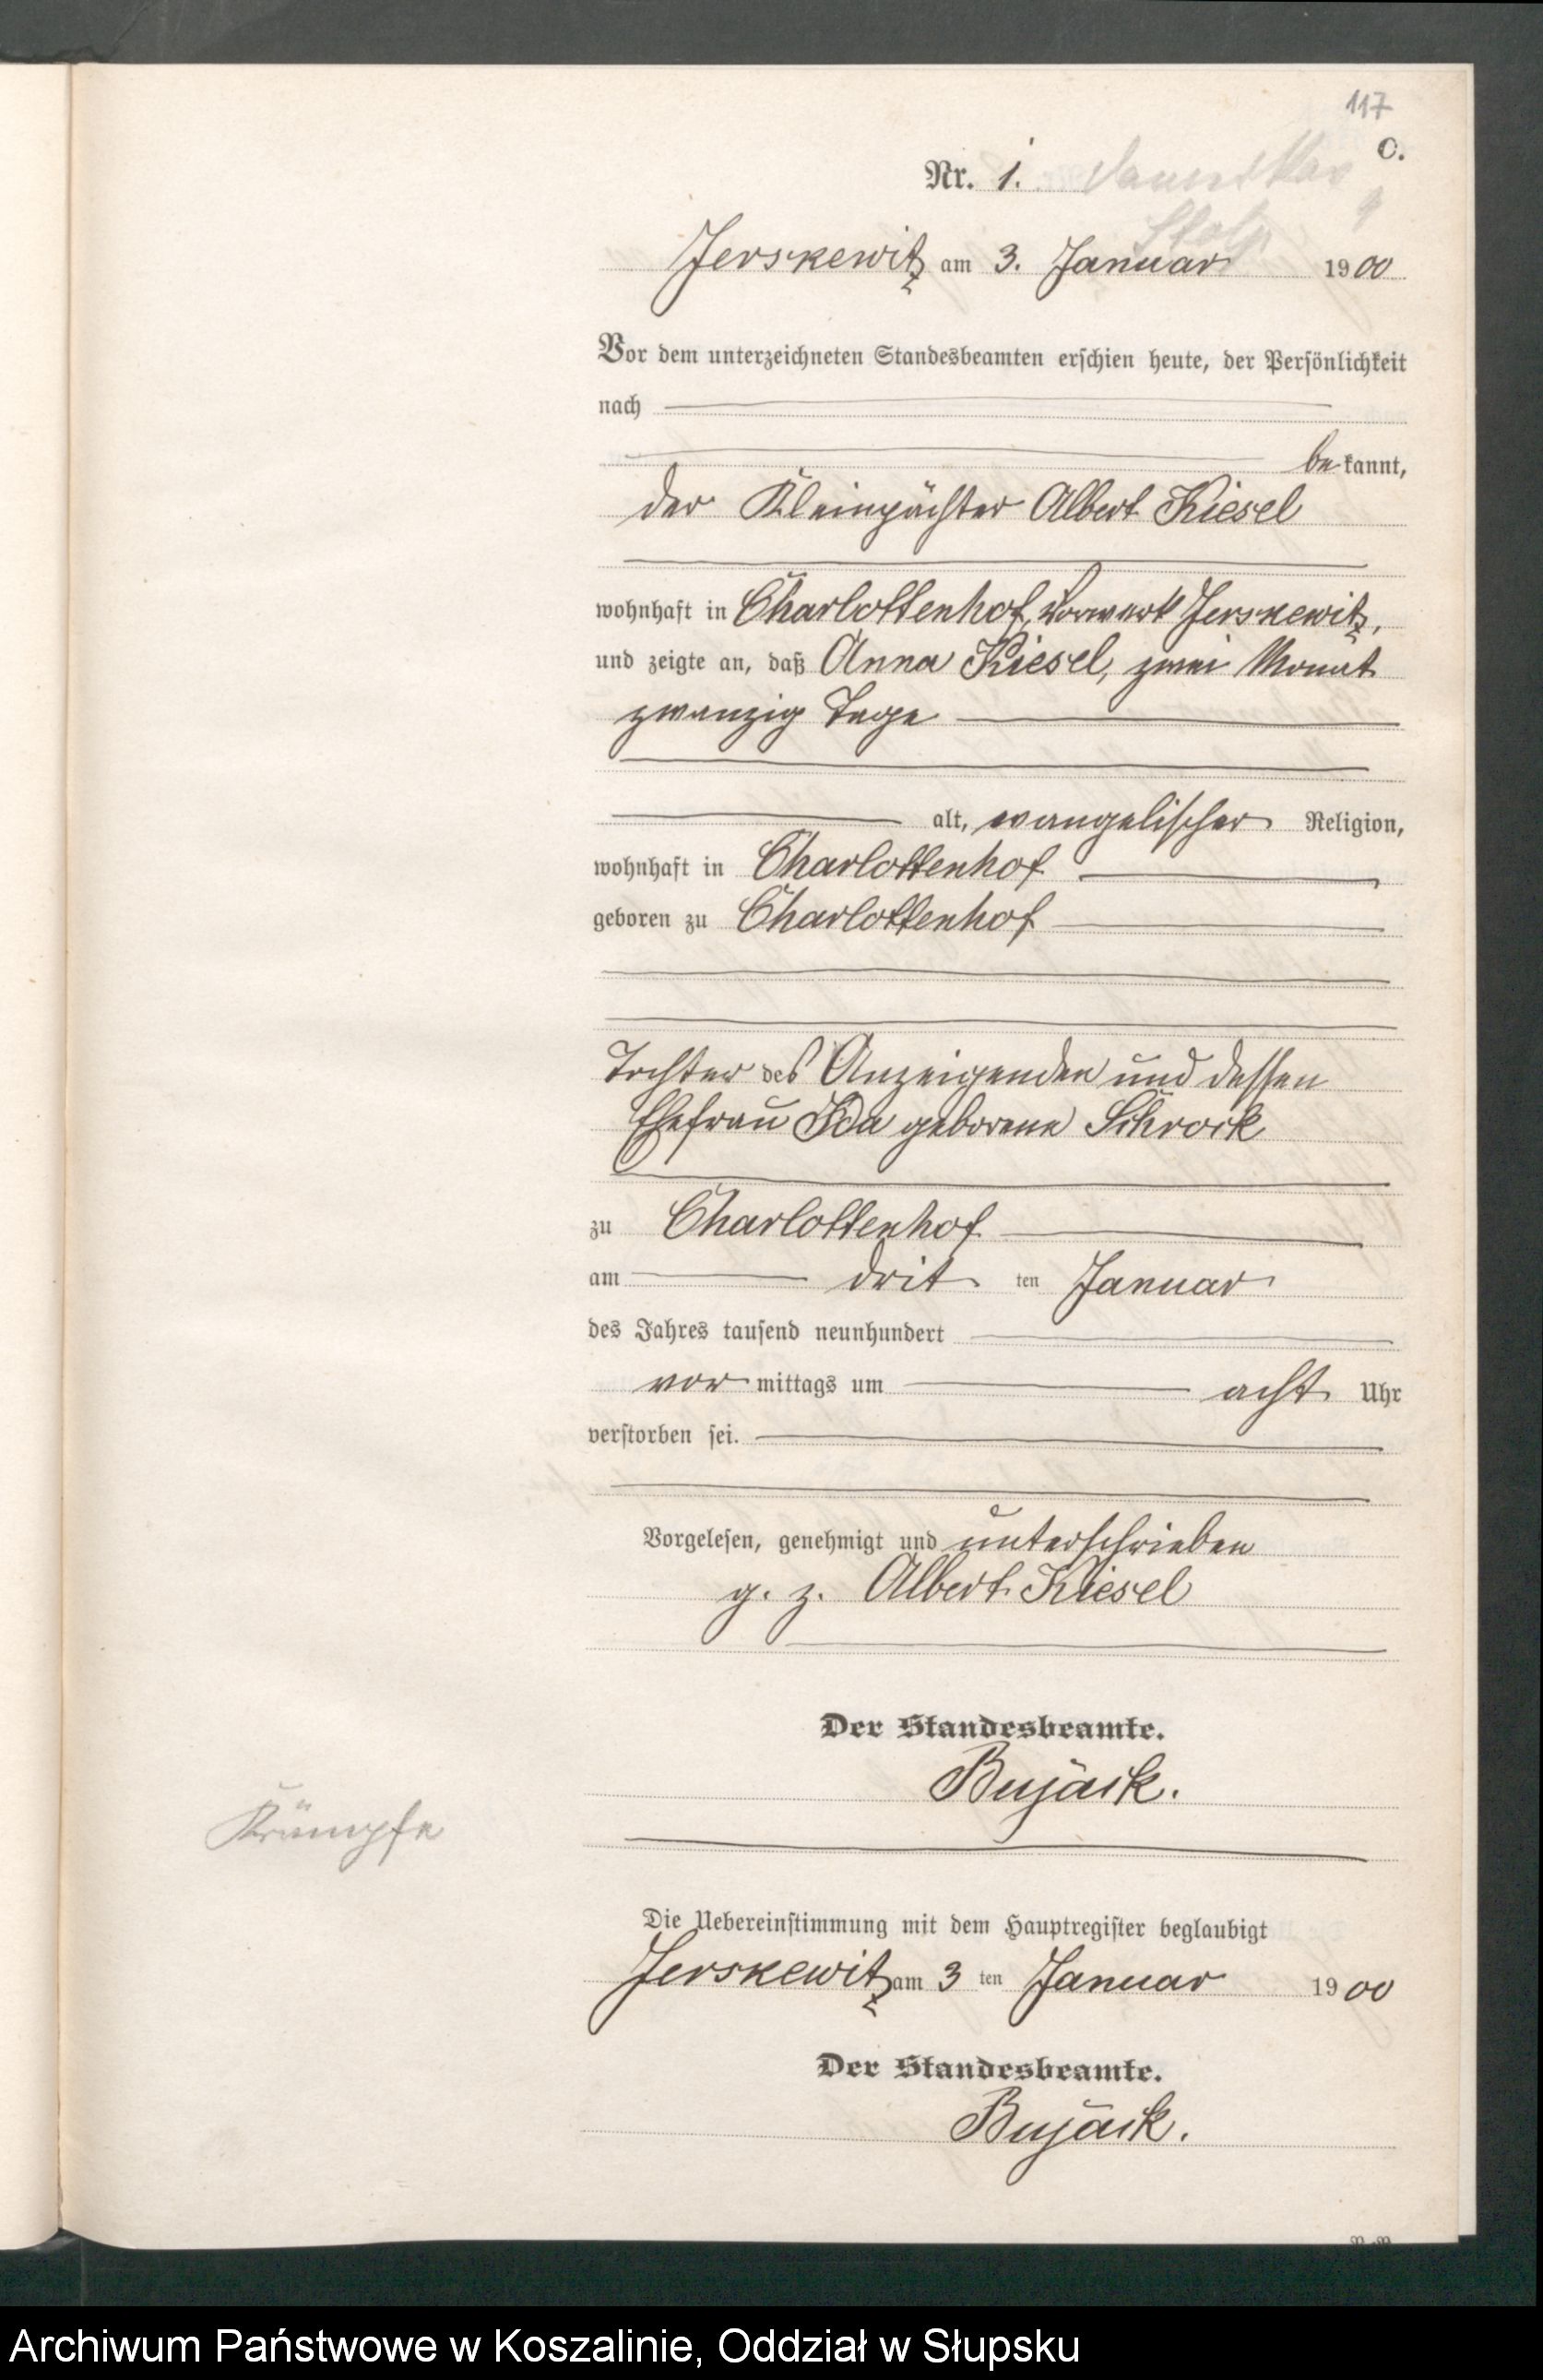 117
C.
Nr. 1.
Jerskewitz am 3. Januar 1900
Vor dem unterzeichneten Standesbeamten erschien heute, der Persönlichkeit
nach
bekannt,
der Kleinpächter Albert Kiesel
wohnhaft in Charlottenhof, Vorwerk Jerskewitz,
und zeigte an, daß Anna Kiesel, zwei Monat
zwanzig Tage
alt, evangelischer Religion,
wohnhaft in Charlottenhof
geboren zu Charlottenhof
Tochter des Anzeigenden und dessen
Ehefrau Ida geborene Schrock
zu Charlottenhof
am drit ten Januar
des Jahres tausend neunhundert
vor mittags um acht Uhr
verstorben sei.
Vorgelesen, genehmigt und unterschrieben
g. z. Albert Kiesel
Der Standesbeamte.
Bujack.
Krämpfe
Die Uebereinstimmung mit dem Hauptregister beglaubigt
Jerskewitz am 3 ten Januar 1900
Der Standesbeamte.
Bujack.
Archiwum Państwowe w Koszalinie, Oddział w Słupsku